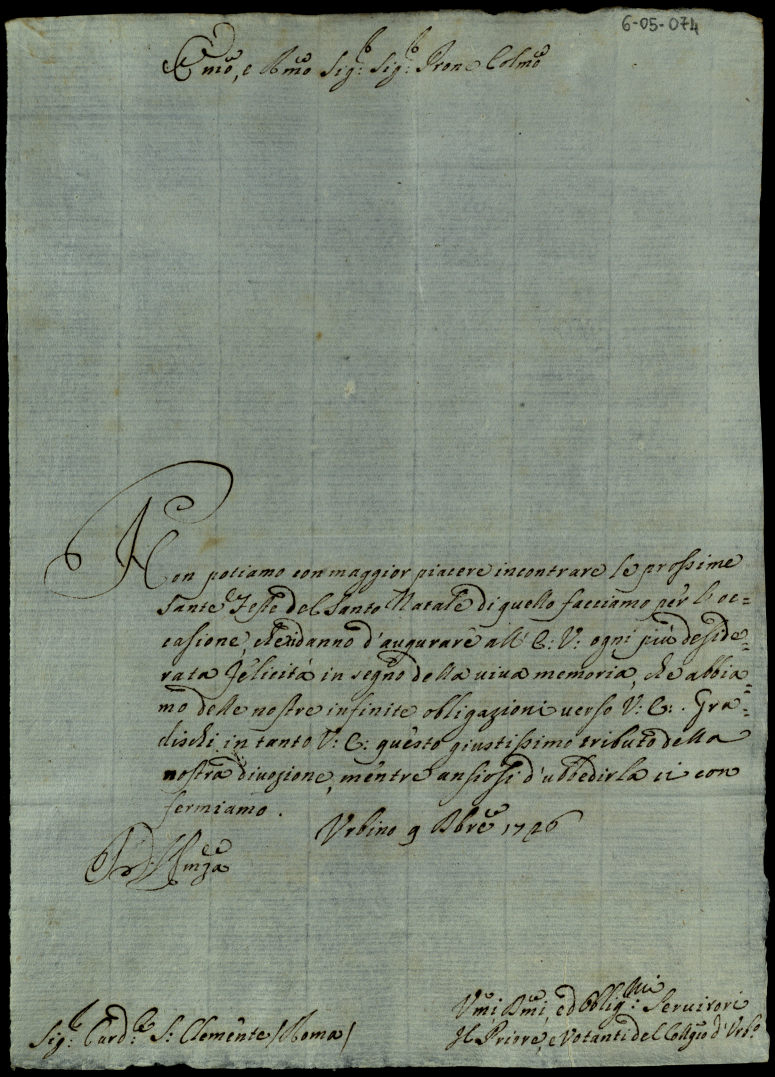 6-05-074
Emo, e Rmo Sig:r Sig:r Prone Colmo
Non potiamo con maggior piacere incontrare le prossime
Sante Feste del Santo Natale di quello facciamo per l'oc=
casione, che ci danno d'augurare all' E: V: ogni più deside=
rata felicità in segno della viva memoria, che abbia=
mo delle nostre infinite obligazioni verso V: E: . Gra=
dischi in tanto V: E: questo giustissimo tributo della
nostra divozione, mentre ansiosi d'ubbedirla ci con
fermiamo .
Urbino 9 Xbre 1726
D: V: Emza
Umi Dmi, ed Oblig:mi Servitori
Sig:r Card:le S: Clemente /Roma/
Il Priore, e Votanti del Collgio d'Urb:o